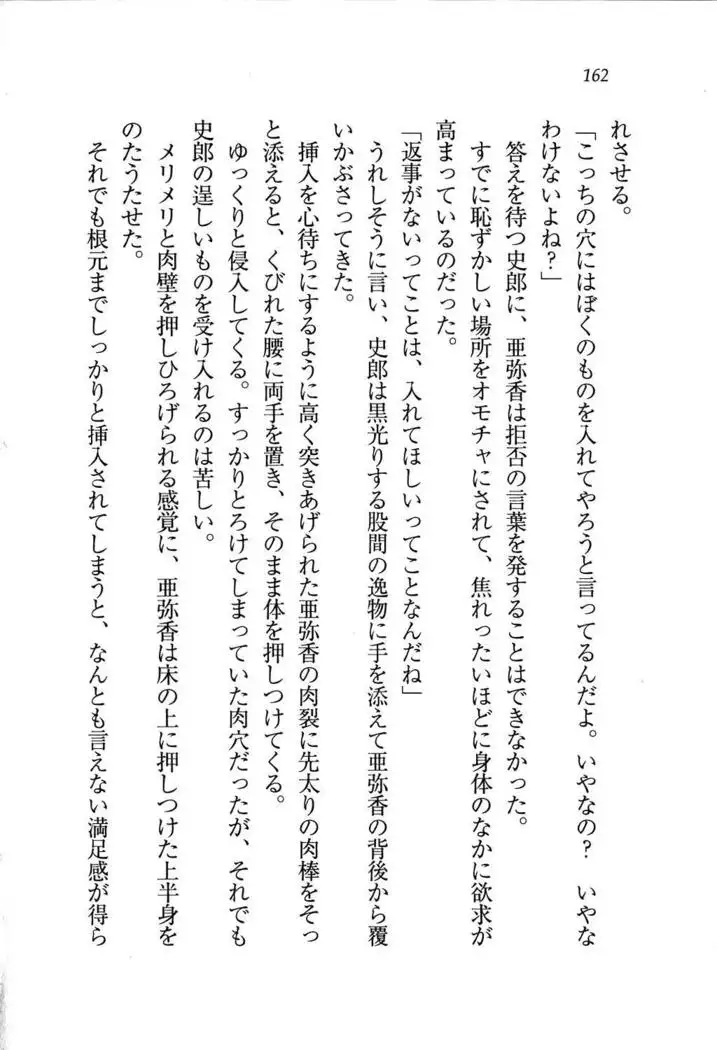 162
れさせる。
「こっちの穴にはぼくのものを入れてやろうと言ってるんだよ。いやなの？　いやな
わけないよね？」
答えを待つ史郎に、亜弥香は拒否の言葉を発することはできなかった。
すでに恥ずかしい場所をオモチャにされて、焦れったいほどに身体のなかに欲求が
高まっているのだった。
「返事がないってことは、入れてほしいってことなんだね」
うれしそうに言い、史郎は黒光りする股間の逸物に手を添えて亜弥香の背後から覆
いかぶさってきた。
挿入を心待ちにするように高く突きあげられた亜弥香の肉裂に先太りの肉棒をそっ
と添えると、くびれた腰に両手を置き、そのまま体を押しつけてくる。
ゆっくりと侵入してくる。すっかりとろけてしまっていた肉穴だったが、それでも
史郎の逞しいものを受け入れるのは苦しい。
メリメリと肉壁を押しひろげられる感覚に、亜弥香は床の上に押しつけた上半身を
のたうたせた。
それでも根元までしっかりと挿入されてしまうと、なんとも言えない満足感が得ら